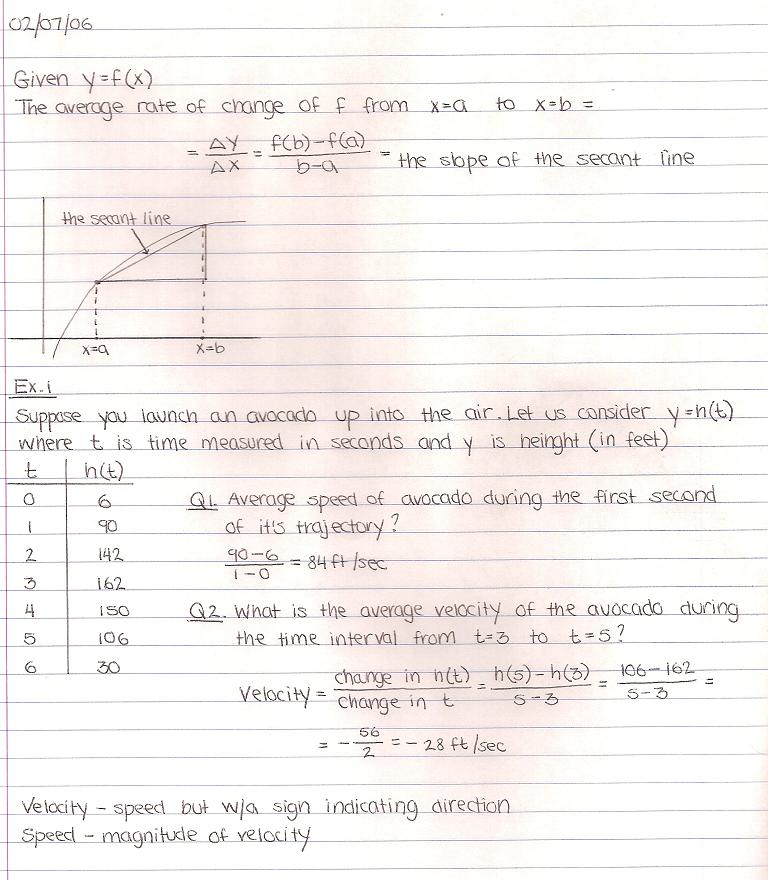 02/07/06
Given y=f(x)
The average rate of change of f from x=a to x=b =
= Δy/Δx = f(b)-f(a)/b-a = the slope of the secant line
the secant line
x=a x=b
Ex.1
Suppose you launch an avocado up into the air. Let us consider y=h(t)
where t is time measured in seconds and y is heinght (in feet)
t h(t)
0 6
1 90
2 142
3 162
4 150
5 106
6 30
Q1. Average speed of avocado during the first second
of it's trajectory?
90-6/1-0 = 84 ft/sec
Q2. What is the average velocity of the avocado during
the time interval from t=3 to t=5?
Velocity = change in h(t)/change in t = h(5)-h(3)/5-3 = 106-162/5-3 =
= -56/2 = -28 ft/sec
Velocity - speed but w/a sign indicating direction
Speed - magnitude of velocity